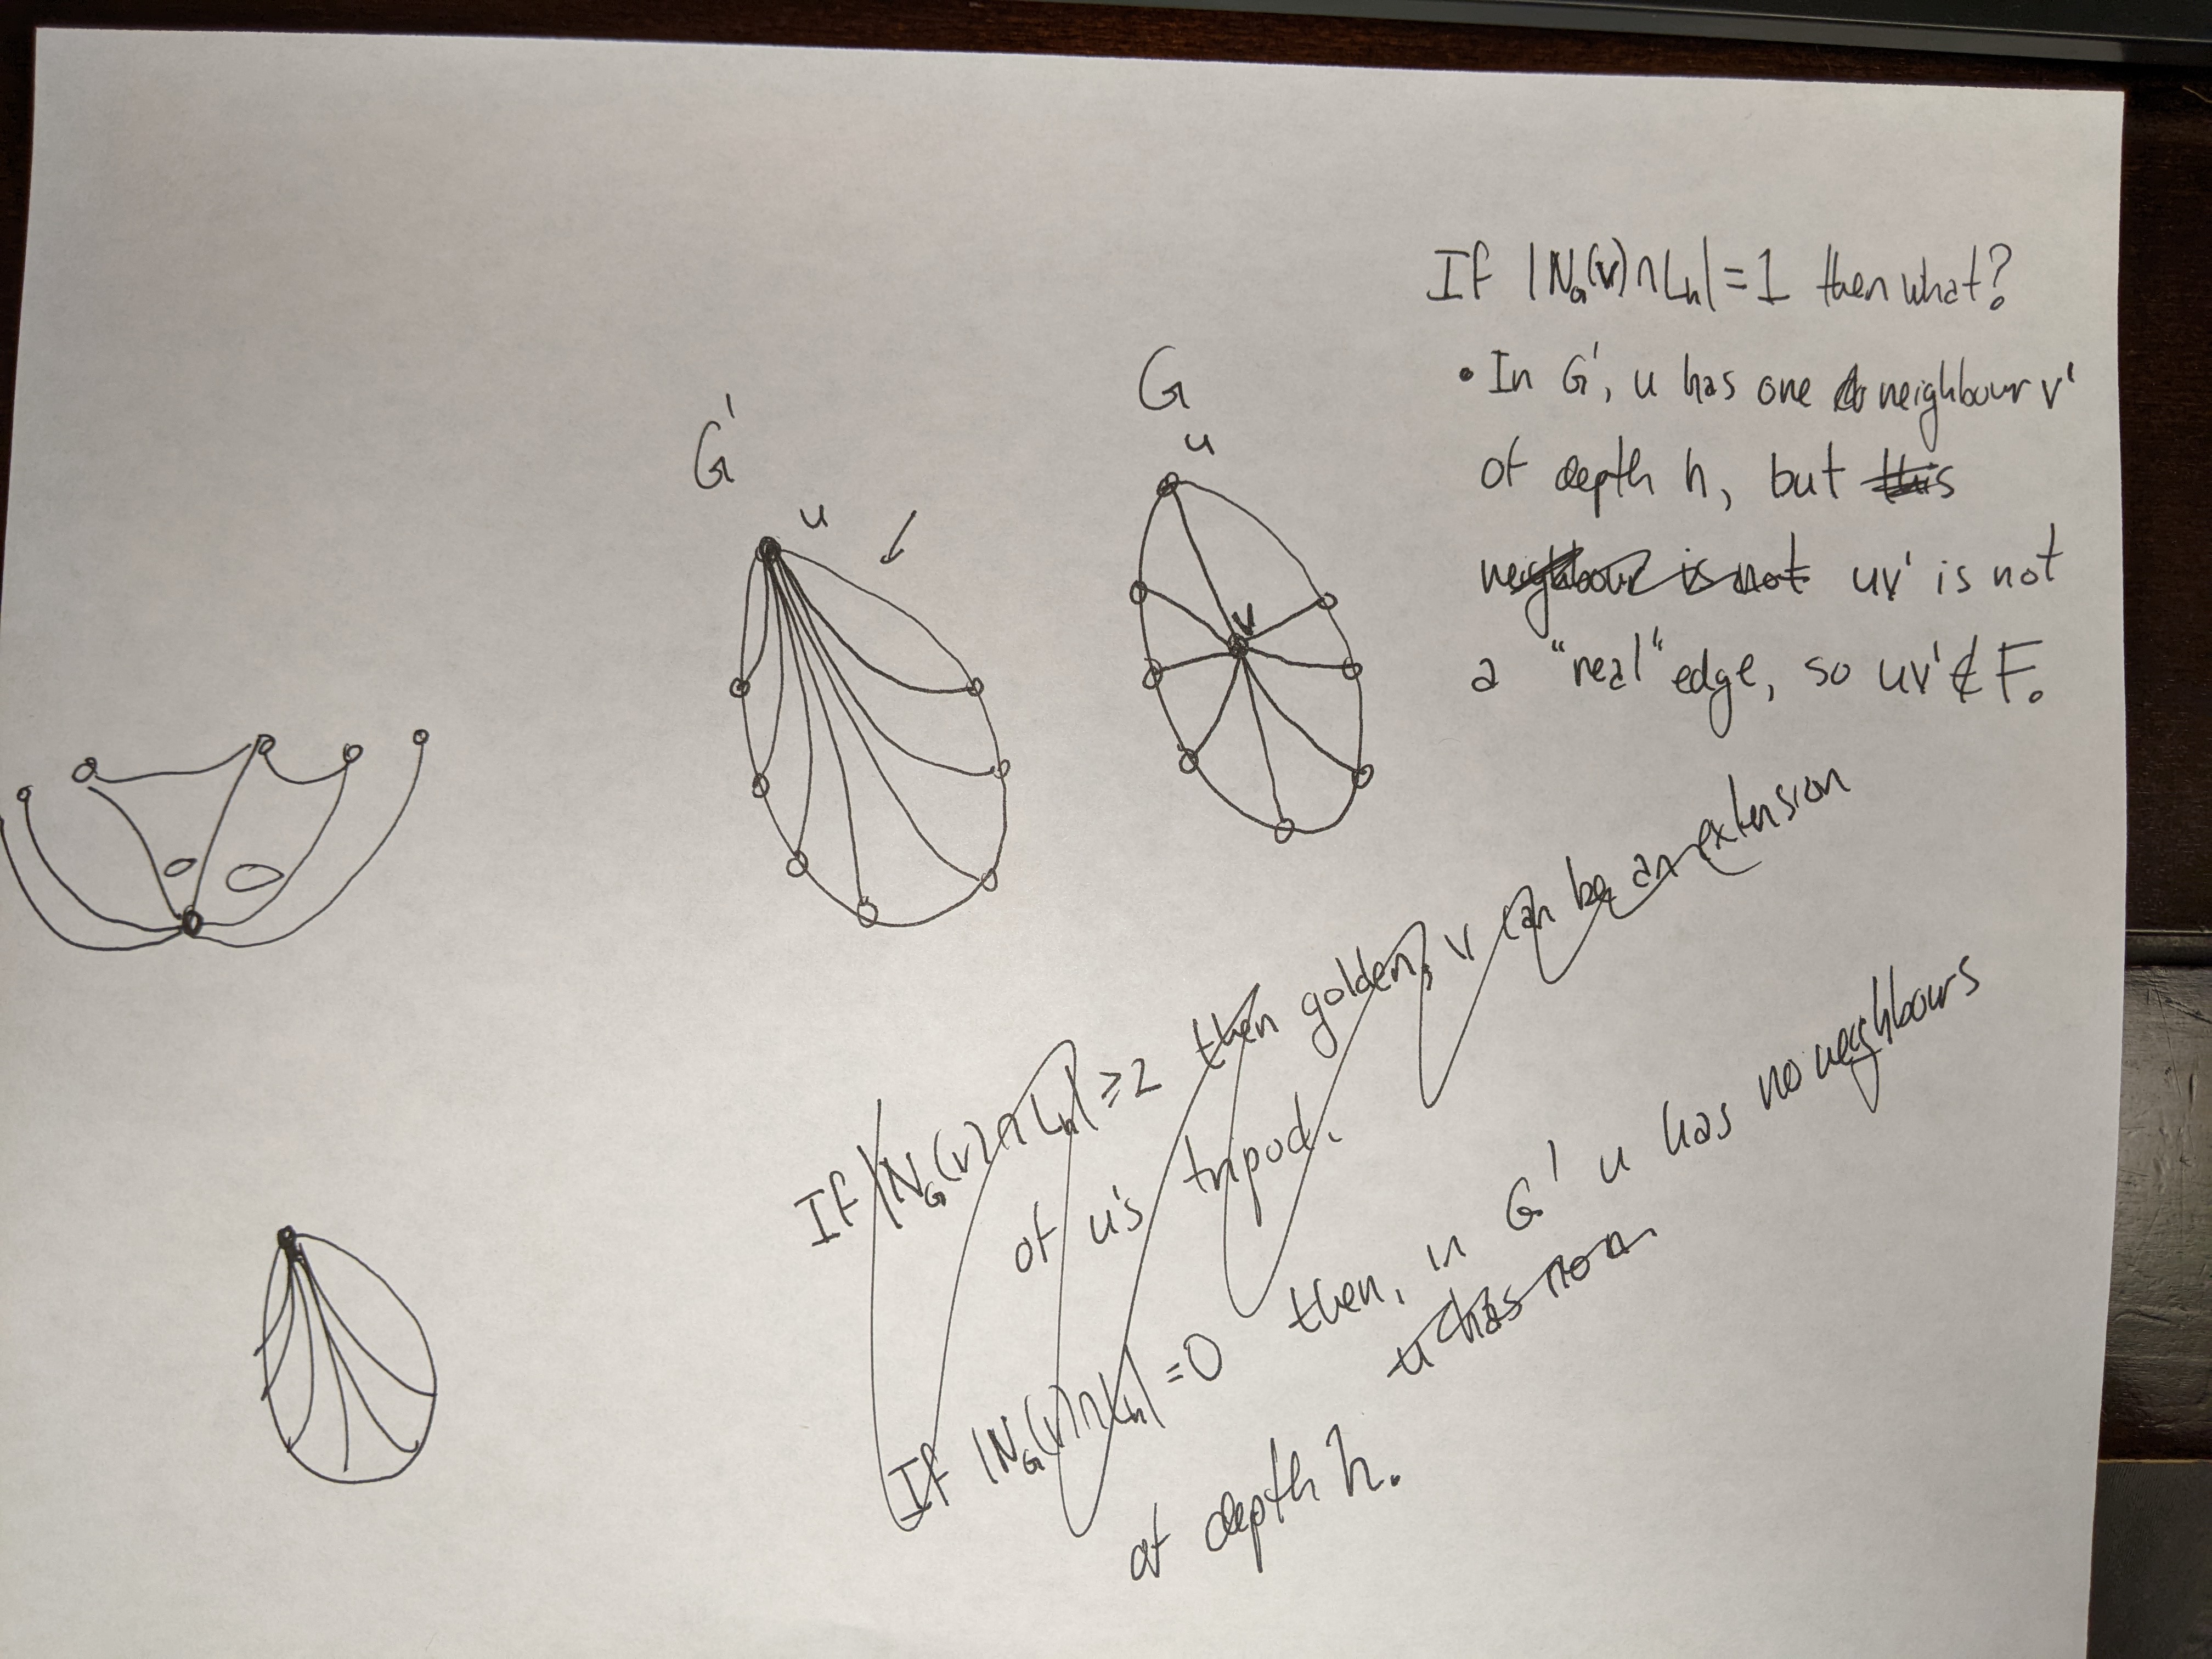 If |N_G(v)∩L_h|=1 then what?
• In G', u has one neighbour v'
of depth h, but this
neighbour is not uv' is not
a "real" edge, so uv'∉F.
G'
u
G
u
v
If |N_G(v)∩L_h|≥2 then golden, v can be an extension
of u's tripod.
If |N_G(v)∩L_h|=0 then, in G' u has no neighbours
u has no n
at depth h.